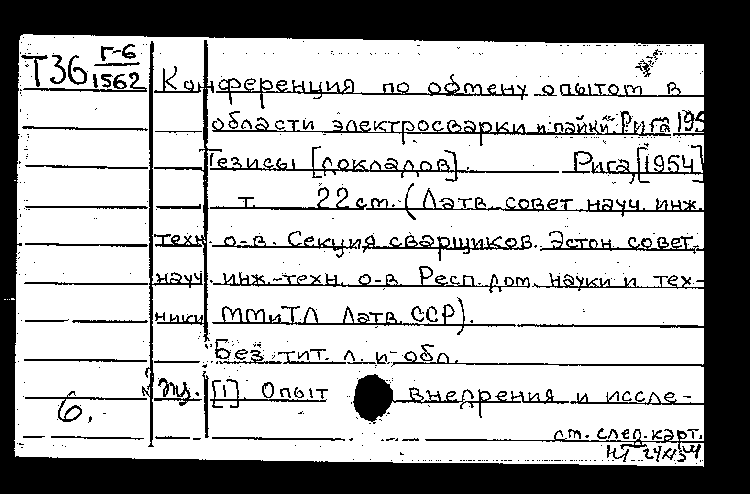 Т36 Г-6
1562 Конференция по обмену опытом в
области электросварки и пайки. Рига 195
Тезисы [докладов]. Рига, [1954]
т. 22 cm. (Латв. совет науч. инж.
техн. о-в. Секция сварщиков. Эстон. совет.
науч. инж.-техн. о-в. Респ. дом. науки и тех-
ники ММиТЛ Латв. ССР).
Без тит. л. и обл.
[1]. Опыт внедрения и иссле-
6.
см. след. карт.